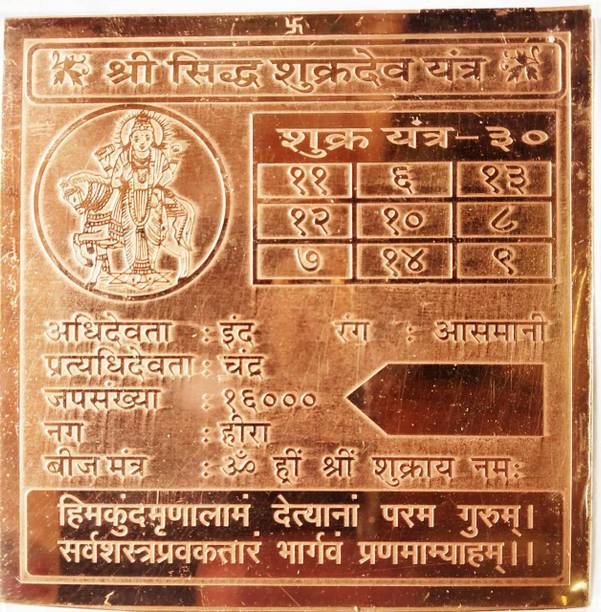 卐
श्री सिद्ध शुक्रदेव यंत्र
शुक्र यंत्र-३०
११ ६ १३
१२ १० ८
७ १४ ९
अधिदेवता : इंद्र रंग : आसमानी
प्रत्यधिदेवता : चंद्र
जपसंख्या : १६०००
नग : हीरा
बीज मंत्र : ॐ ह्रीं श्रीं शुक्राय नमः
हिमकुंदमृणालामं देत्यानां परम गुरुम्।
सर्वशस्त्रप्रवक्तारं भार्गवं प्रणमाम्याहम्।।